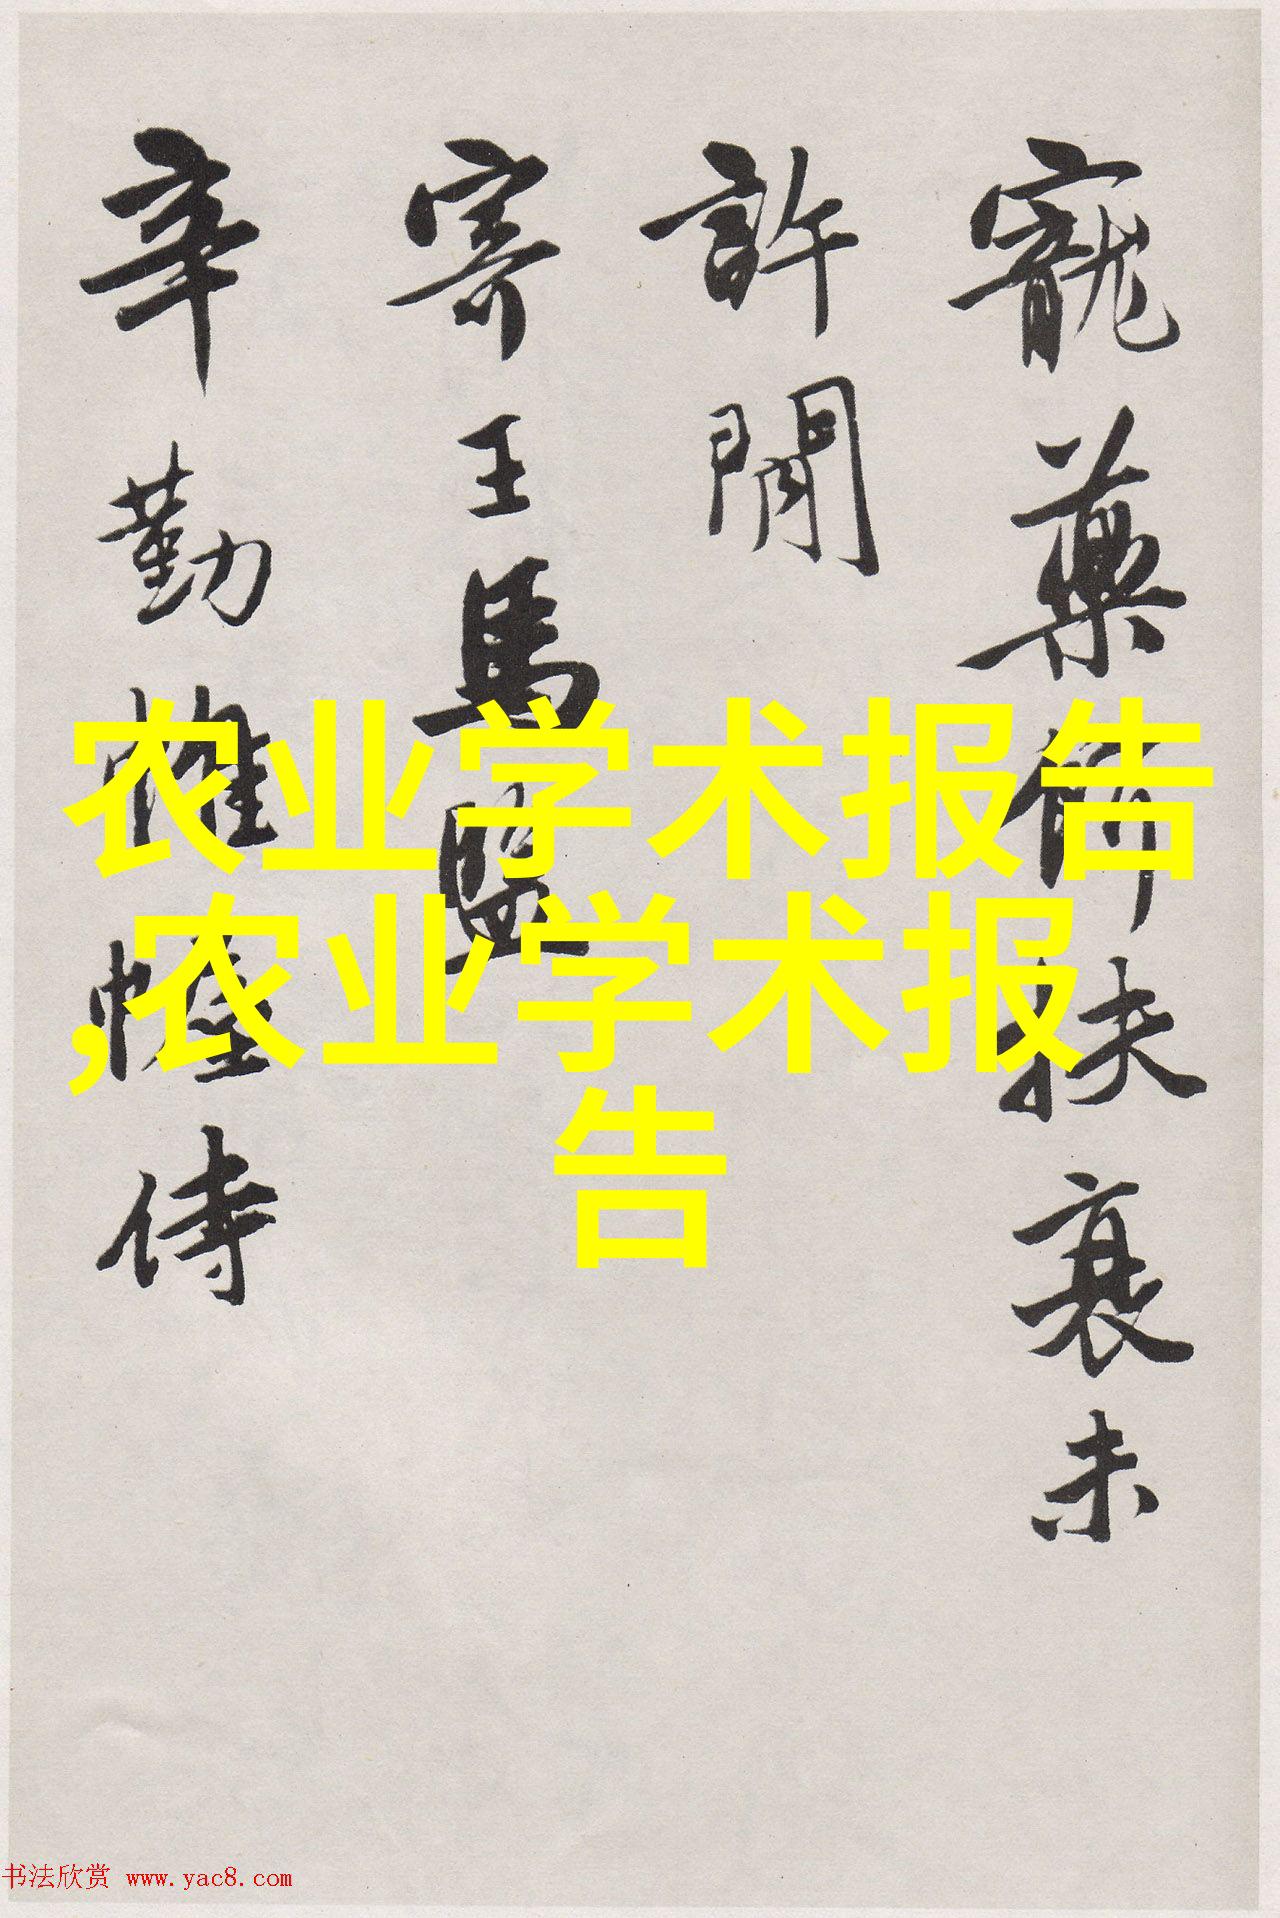 寵藥餌扶衰未
許閒
寄王馬監
辛勤帷幄侍
农业学术报告
,农业学术报
告
书法欣赏 www.yac8.com